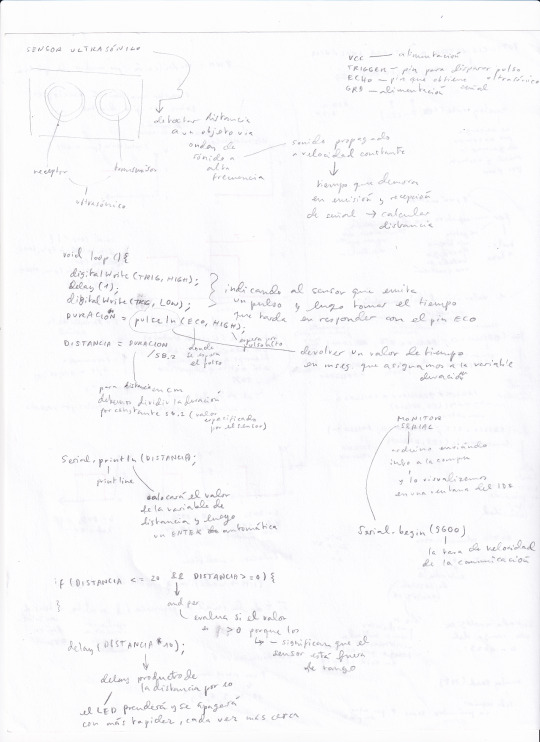 SENSOR ULTRASÓNICO
VCC — alimentación
TRIGGER — pin para disparar pulso
ECHO — pin que obtiene ultrasónico
señal
GRD — alimentación
detectar distancia
a un objeto vía
ondas de
sonido a
alta
frecuencia
sonido propagado
a velocidad constante
tiempo que demora
en emisión y recepción
de señal → calcular
distancia
receptor
transmisor
ultrasónico
void loop () {
digitalWrite (TRIG, HIGH);
delay (1);
digitalWrite (TRIG, LOW);
indicando al sensor que emita
un pulso y luego tomar el tiempo
que tarda en responder con el pin ECO
DURACION = pulseIn (ECO, HIGH);
donde
se espera
el pulso
DISTANCIA = DURACION
/ 58.2
devolver un valor de tiempo
en mseg. que asignamos a la variable
duración
para distancia en cm
debemos dividir la duración
por constante 58.2 (valor
especificado
por el sensor)
MONITOR
SERIAL
arduino enviando
info a la compu
y lo visualizamos
en una ventana del IDE
Serial.println (DISTANCIA);
print line
colocará el valor
de la variable de
distancia y luego
un ENTER automática
Serial.begin (9600)
la tasa de velocidad
de la comunicación
if (DISTANCIA <= 20 && DISTANCIA >= 0) {
}
evalua si el valor
> 0 porque los
- significan que el
sensor está fuera
de rango
delay (DISTANCIA * 10);
delay producto de
la distancia por
el LED prenderá y se apagará
con más rapidez, cada vez más cerca